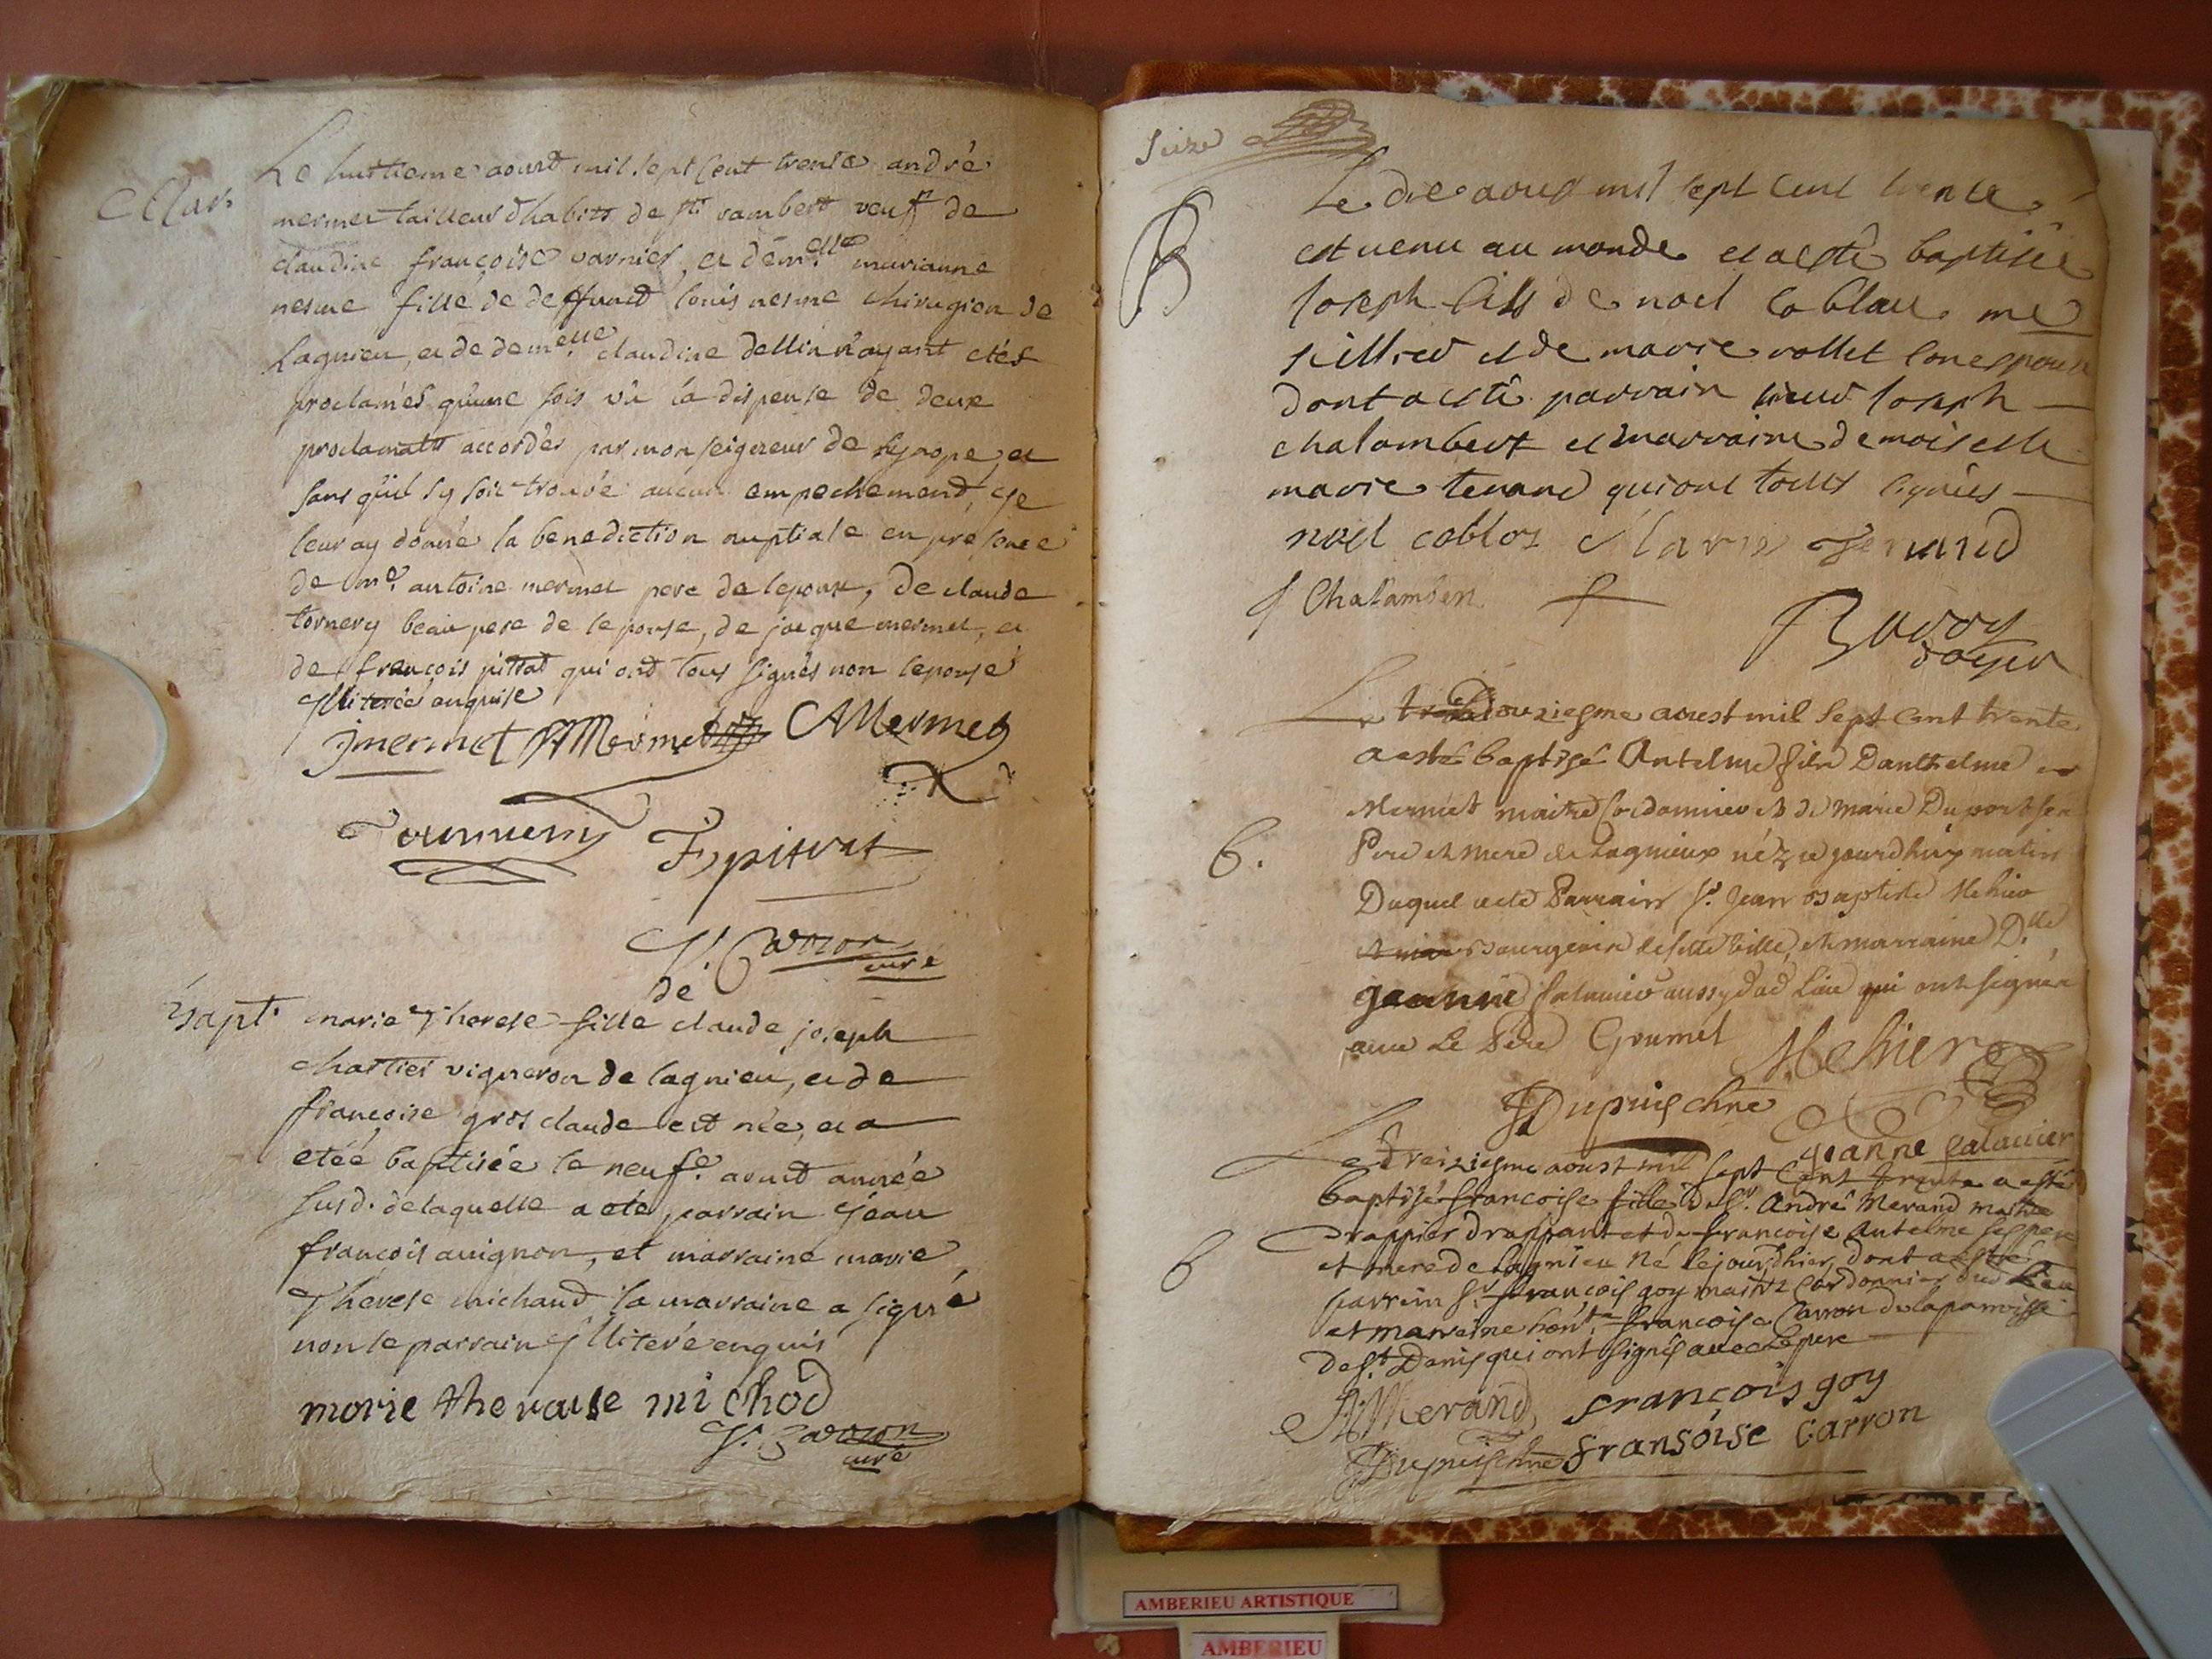 Mar.
Le huitieme aoust mil sept cent trente andré
mermet tailleur d'habits de st rambert veuf de
claudine françoise varnier, et dem.elle marianne
nesme fille de deffunct louis nesme chirugien de
Lagnieu, et de dem.elle claudine dellin n'ayant etés
proclamés qu'une fois vû la dispense de deux
proclamatns accordés par monseigneur de et
sans qu'il sy soit trouvé aucun empechement, je
leur ay donné la benediction nuptiale en presence
de me. antoine mermet pere de lepoux, de claude
tornery beau pere de lepouse, de jacque mermet, et
de françois pittat qui ont tous signés non lepouse
illiterée enquise
jmermet AMermet AMermet
Tournery F pitrat
J. Carron
curé
de
Bapt. marie Therese fille claude joseph
chartier vigneron de lagnieu, et de
françoise gros claude est née, et a
etéé baptisée le neufe. aoust année
susd. de laquelle a ete parrain jean
françois avignon, et marraine marie
Therese michaud la marraine a signé
non le parrain illiteré enquis
morie therause michod
J. Carron
curé
Seize
B
Le die aoust mil sept cent trente
est venu au monde et a esté baptisée
Joseph fils de noel coblau me
sellier et de marie vollet son espouse
dont a esté parrain sieur Joseph
chalambert et marraine demoiselle
marie tenand qui ont touts signés
noel cobloz Marie Tenand
J Chalamber
Ravoy
doyen
Le douziesme aoust mil sept cent trente
a esté baptisé Antelme fils Danthelme
Mermet maitre Cordonnier et de marie Duport ses
6. Pere et mere de Lagnieux néz ce jourdhuy matin
Duquel a ete Parrain sr. Jean Baptiste Mehier
Bourgeois de cette ville, et marraine Dlle
jeanne palanier aussy dud Lieu qui ont signéz
avec Le Pere Groumel Mehier
JDupuis chne
jeanne palanier
Le treiziesme aoust mil sept cent trente a esté
baptisé francoise fille de Sr. André Merand maitre
drappier drappant et de francoise Antelme ses pere
6 et mere de Lagnieu né le jourdhier, dont a esté
parrein Sr. francois goy maitre Cordonnier dud Lieu
et marreine honte. francoise Carron de la paroisse
de St. Denis qui ont signés avec Le pere
AMerand françois goy
JDupuis chne fransoise Carron
AMBERIEU ARTISTIQUE
AMBERIEU